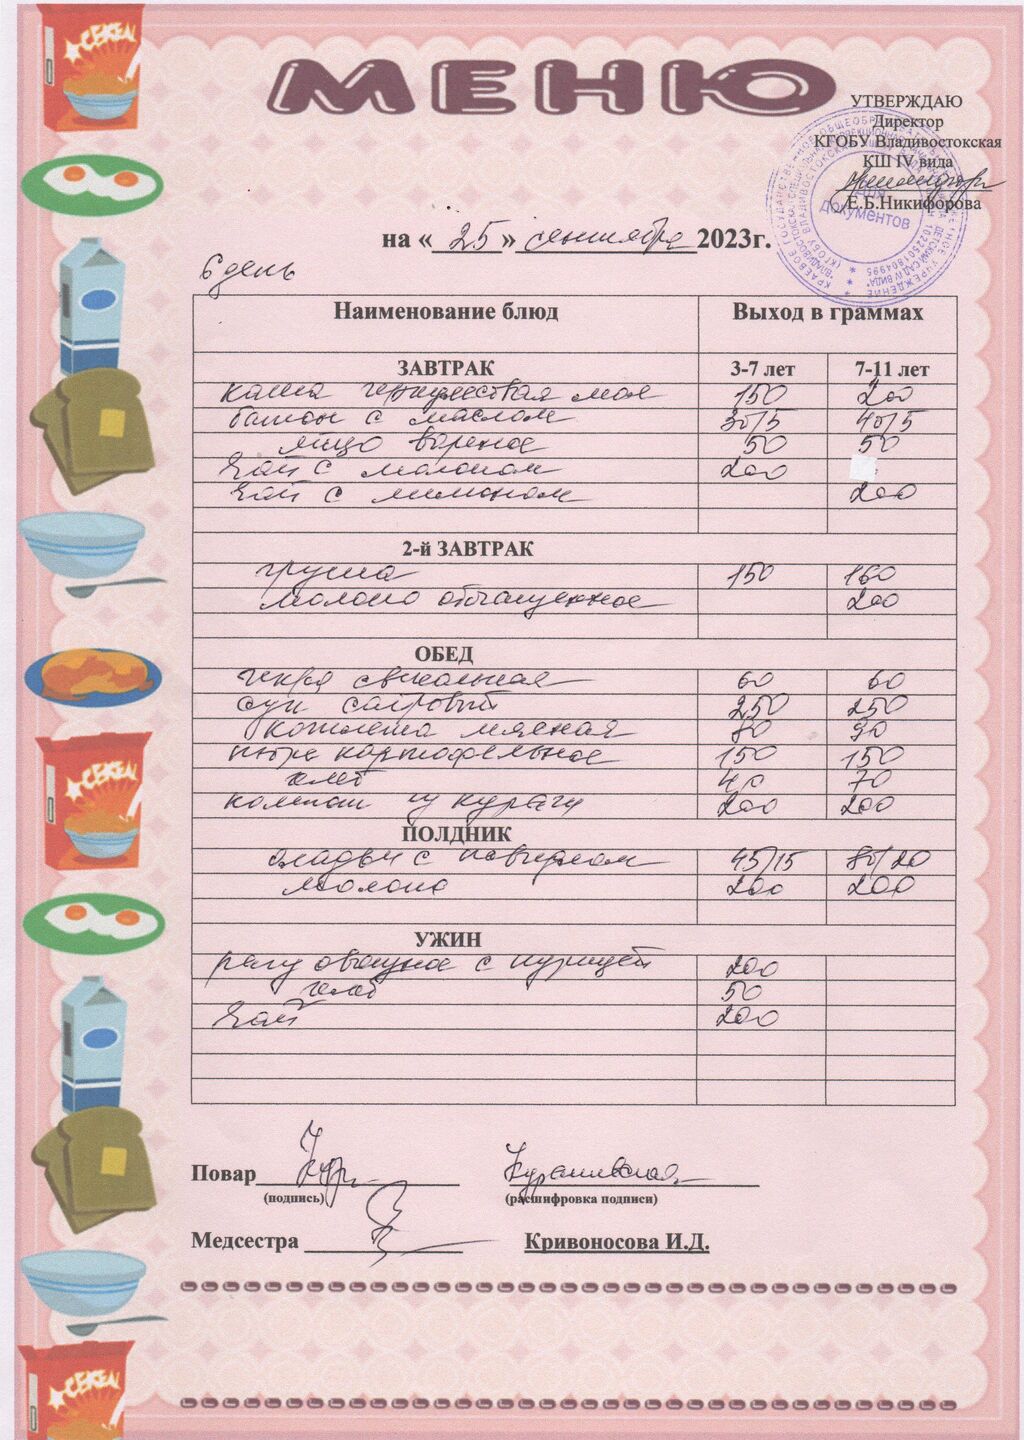 CEREAL
МЕНЮ
УТВЕРЖДАЮ
Директор
КГОБУ Владивостокская
КШ IV вида
Е.Б.Никифорова
Для
документов
на « 25 » сентября 2023г.
6 день
Наименование блюд Выход в граммах
ЗАВТРАК 3-7 лет 7-11 лет
каша геркулесовая мол 150 200
батон с маслом 30/5 40/5
яйцо вареное 50 50
чай с молоком 200
чай с лимоном 200
2-й ЗАВТРАК
груша 150 160
молоко обогащенное 200
ОБЕД
икра свекольная 60 60
суп сайровый 250 250
котлета мясная 80 90
пюре картофельное 150 150
хлеб 40 70
компот из кураги 200 200
CEREAL
ПОЛДНИК
оладьи с повидлом 45/15 80/20
молоко 200 200
УЖИН
рагу овощное с курицей 200
хлеб 50
чай 200
Повар
(подпись) (расшифровка подписи)
Медсестра Кривоносова И.Д.
CEREAL